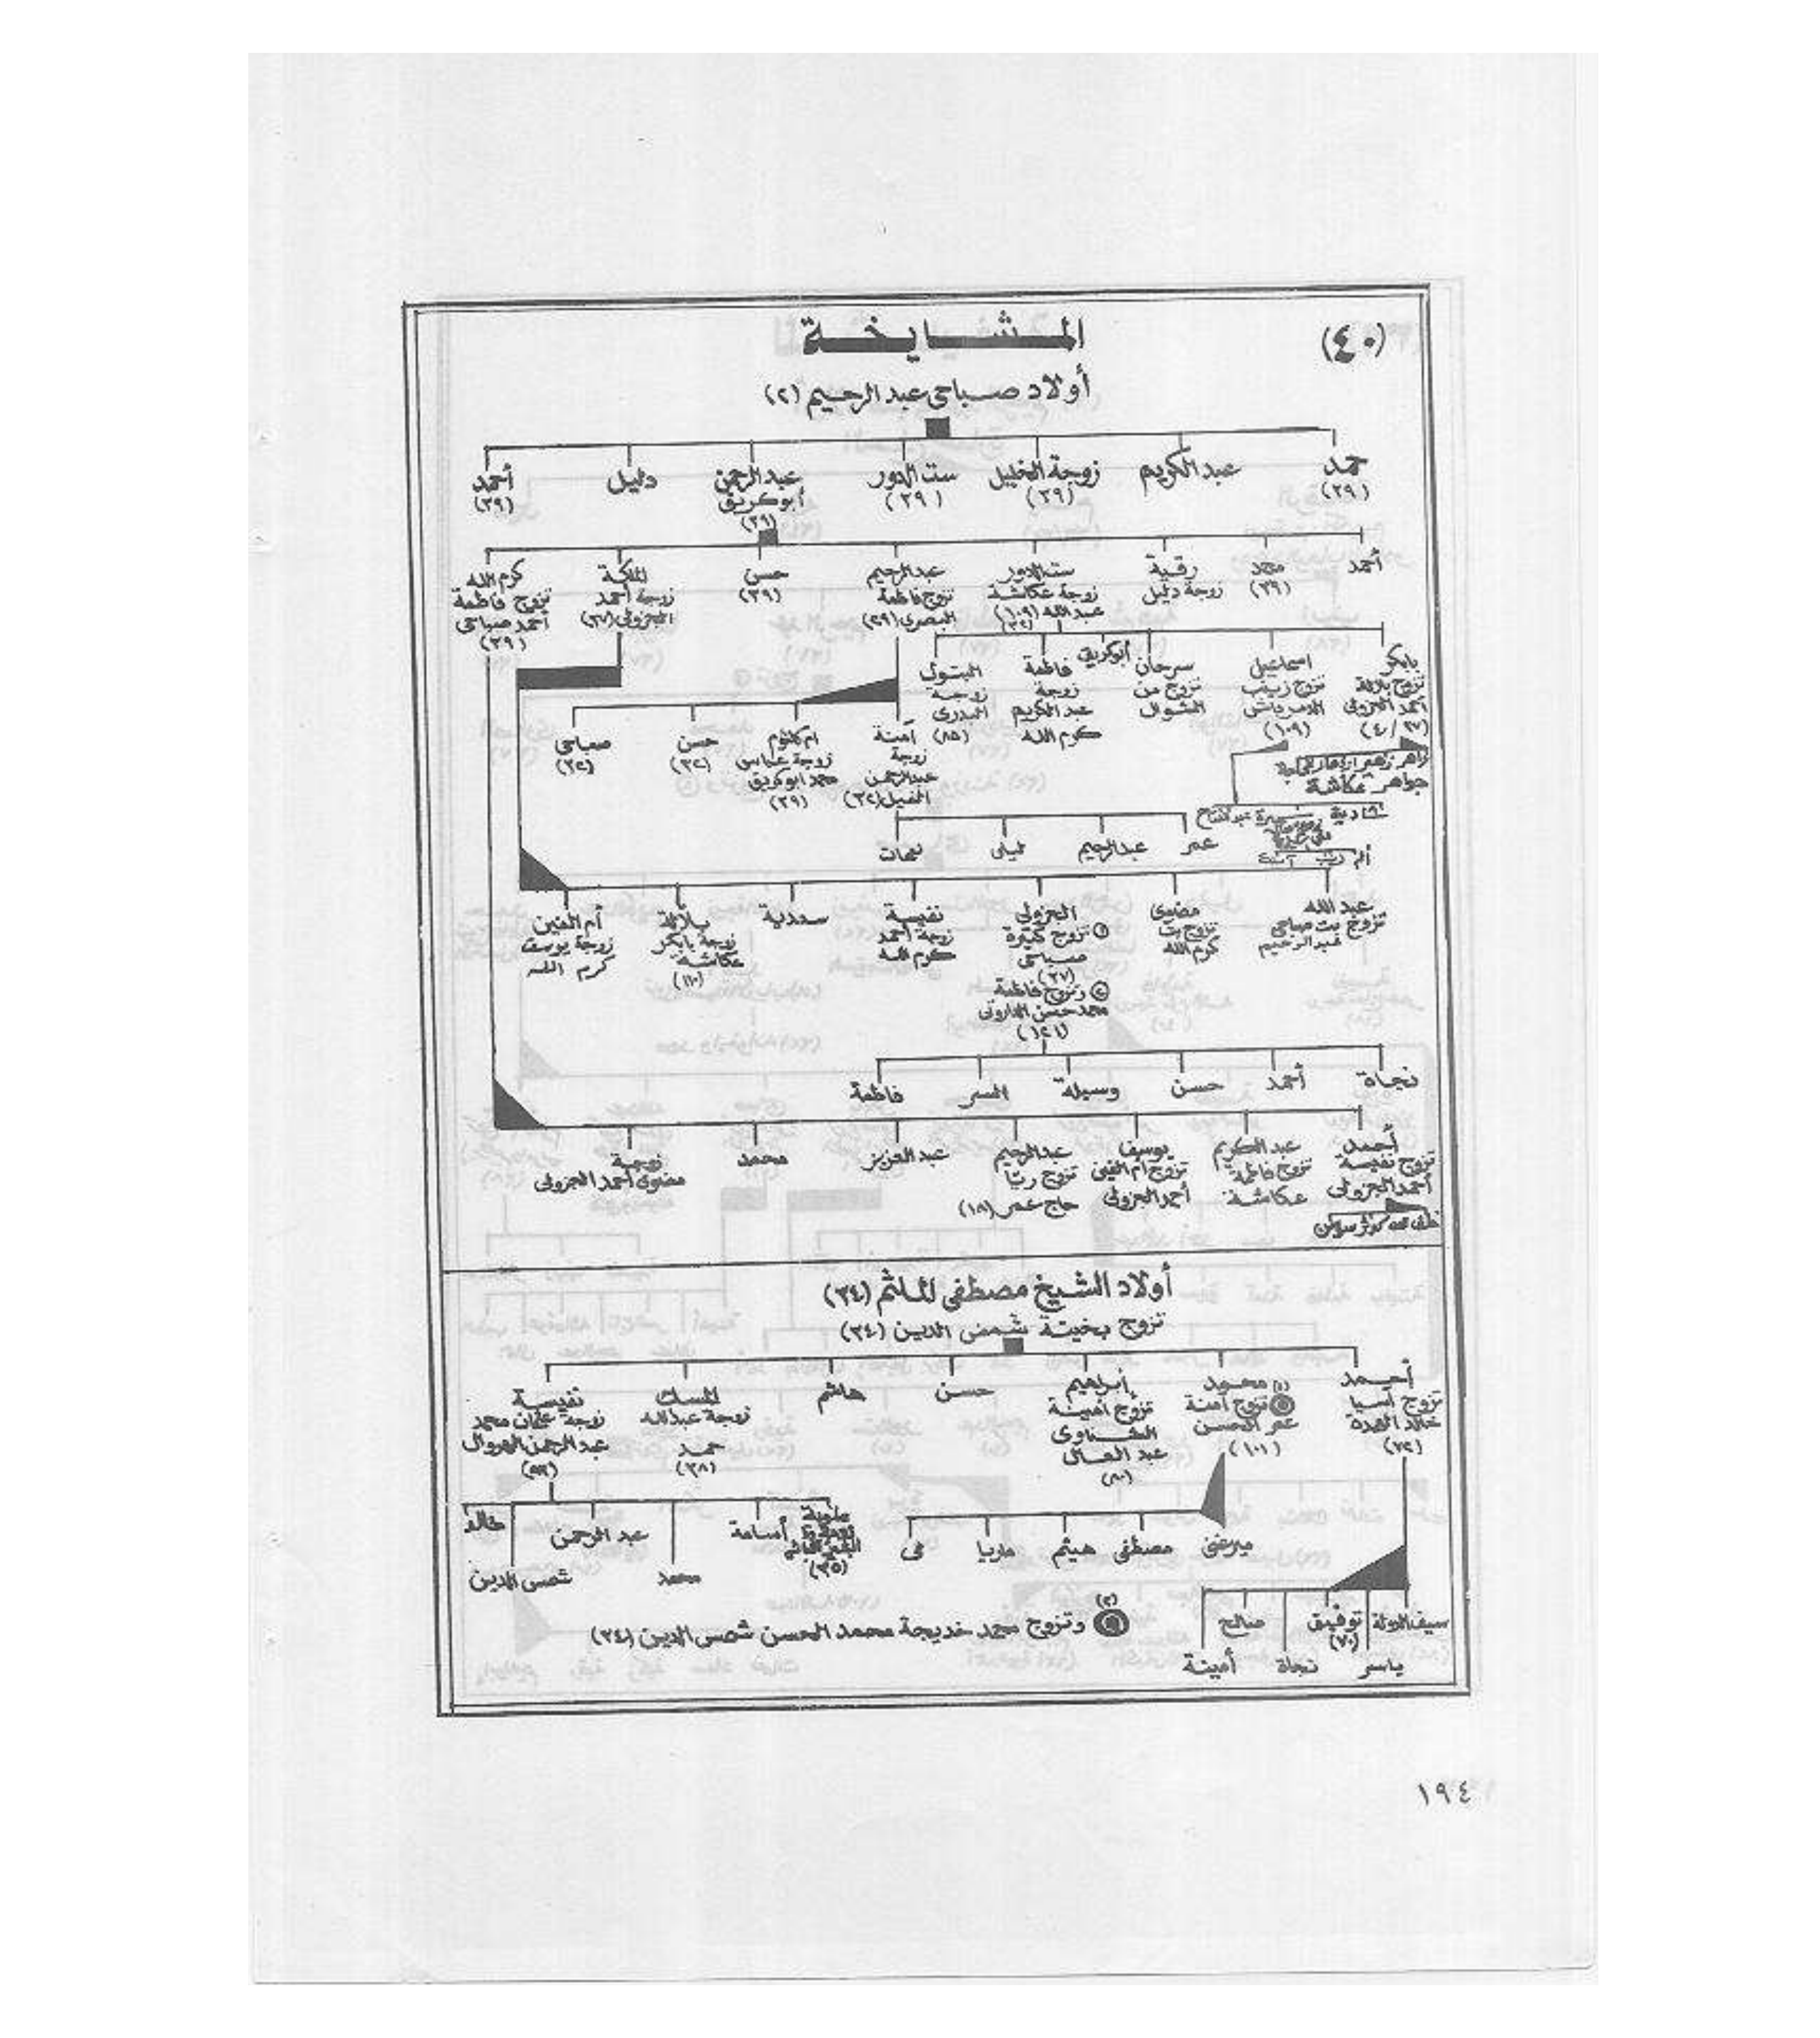 (٤٠)
المشايخة
أولاد صباحى عبد الرحيم (٢)
حمد
(٣٩)
عبد الكريم
زوجة الخليل
(٣٩)
ست الدور
(٣٩)
عبد الرحمن
أبوكريق
(٣٩)
دليل
أحمد
(٣٩)
أحمد
محمد
(٣٩)
رقية
زوجة دليل
ست الدور
زوجة عكاشة
عبد الله (١٠٩)
عبد الرحيم
تزوج فاطمة
البصرى (٣٩)
حسن
(٣٩)
الملكة
زوجة أحمد
الجزولى (٣٧)
كرم الله
تزوج فاطمة
أحمد صباحى
(٣٩)
بابكر
تزوج بلالة
أحمد الجزولى
(٤٠/٣٧)
اسماعيل
تزوج زينب
(١٠٩)
سرحان
تزوج من
الشوال
أبوكريق
فاطمة
زوجة
عبد الكريم
كرم الله
البتول
زوجة
البدرى
(٨٥)
آمنة
زوجة
عبد الرحمن
ام كلثوم
زوجة عباس
محمد ابوكريق
(٣٩)
حسن
(٣٢)
صباحى
(٣٢)
جواهر عكاشة
عمر
عبد الرحيم
ليلى
نعمات
عبد الله
تزوج بت صباحى
عبد الرحيم
مضوى
تزوج بت
كرم الله
الجزولى
(١) تزوج كبيرة
صباحى
(٣٧)
(٢) وتزوج فاطمة
محمد حسن
(١٢١)
نفيسة
زوجة أحمد
كرم الله
سعدية
بلالة
زوجة بابكر
عكاشة
(١١٠)
أم الفين
زوجة يوسف
كرم الله
نجاة
أحمد
حسن
وسيلة
السر
فاطمة
أحمد
تزوج نفيسة
أحمد الجزولى
عبد الكريم
تزوج فاطمة
عكاشة
يوسف
تزوج ام الفين
أحمد الجزولى
عبد الرحيم
تزوج ريا
حاج عمر (١٨)
عبد العزيز
محمد
زوجة
مضوى أحمد الجزولى
أولاد الشيخ مصطفى الملثم (٣٤)
تزوج بخيتة شمس الدين (٣٤)
أحمد
تزوج آسيا
خالد الهدة
(٧٢)
محمد
(١) تزوج آمنة
عمر الحسن
(١٠١)
إبراهيم
تزوج أمينة
الشناوى
عبد العال
(٨٠)
حسن
هاشم
المسك
زوجة عبد الله
حمد
(٣٨)
نفيسة
زوجة عثمان محمد
عبد الرحمن الهروال
ميرغنى
مصطفى
هيثم
ماريا
مى
علوية
(٣٥)
أسامة
محمد
عبد الرحمن
شمس الدين
خالد
سيف الدولة
ياسر
توفيق
(٧٠)
نجاة
صالح
أمينة
(٢) وتزوج محمد خديجة محمد الحسن شمس الدين (٣٤)
١٩٤